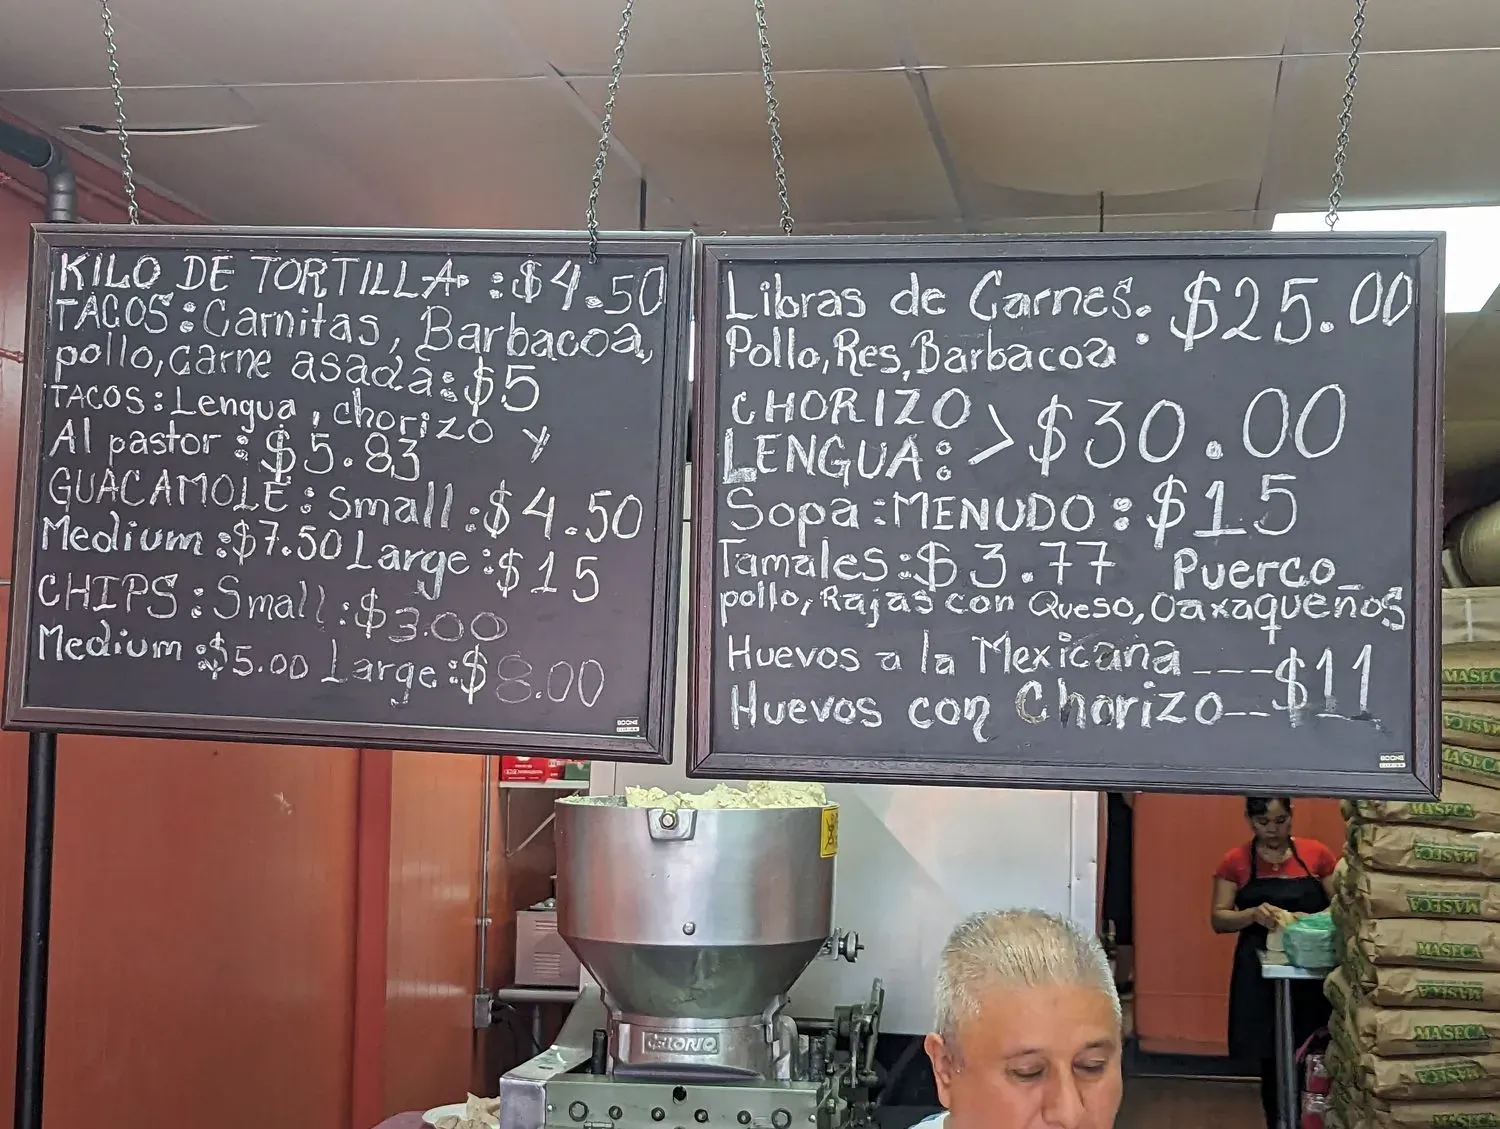 KILO DE TORTILLA : $4.50
TACOS: Carnitas, Barbacoa,
pollo, carne asada: $5
TACOS: Lengua, chorizo y
Al pastor: $5.83
GUACAMOLE: Small: $4.50
Medium: $7.50 Large: $15
CHIPS: Small: $3.00
Medium: $5.00 Large: $8.00
Libras de Carnes: $25.00
Pollo, Res, Barbacoa
CHORIZO
LENGUA: > $30.00
Sopa: MENUDO: $15
Tamales: $3.77 Puerco_
pollo, Rajas con Queso, Oaxaqueños
Huevos a la Mexicana ---$11
Huevos con Chorizo--$11
CELORIO
MASECA
MASECA
MASECA
MASECA
MASECA
MASECA
MASECA
MASECA
MASECA
MASECA